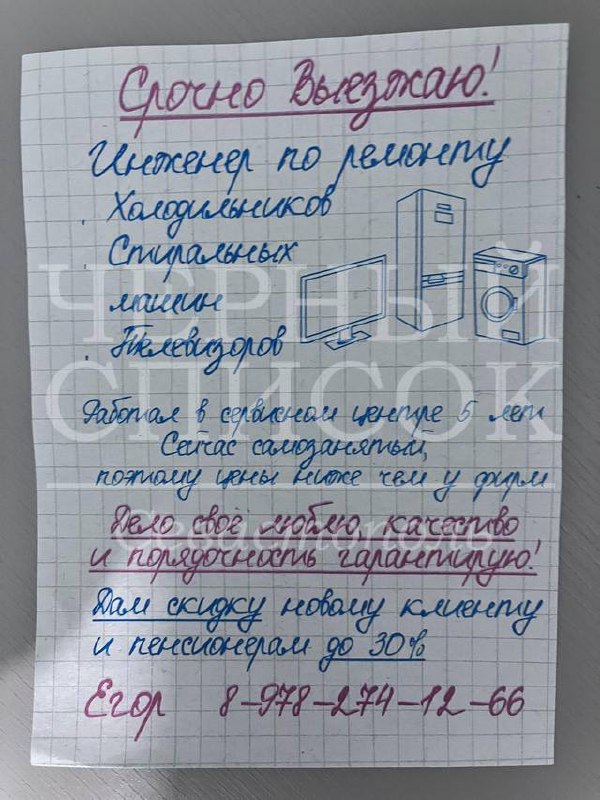 Срочно Выезжаю!
Инженер по ремонту
. Холодильников
. Стиральных
машин
. Телевизоров
ЧЕРНЫЙ
СПИСОК
Работал в сервисном центре 5 лет
Сейчас самозанятый,
поэтому цены ниже чем у фирм
Севастополь
Дело своё люблю, качество
и порядочность гарантирую!
Дам скидку новому клиенту
и пенсионерам до 30%
Егор 8-978-274-12-66